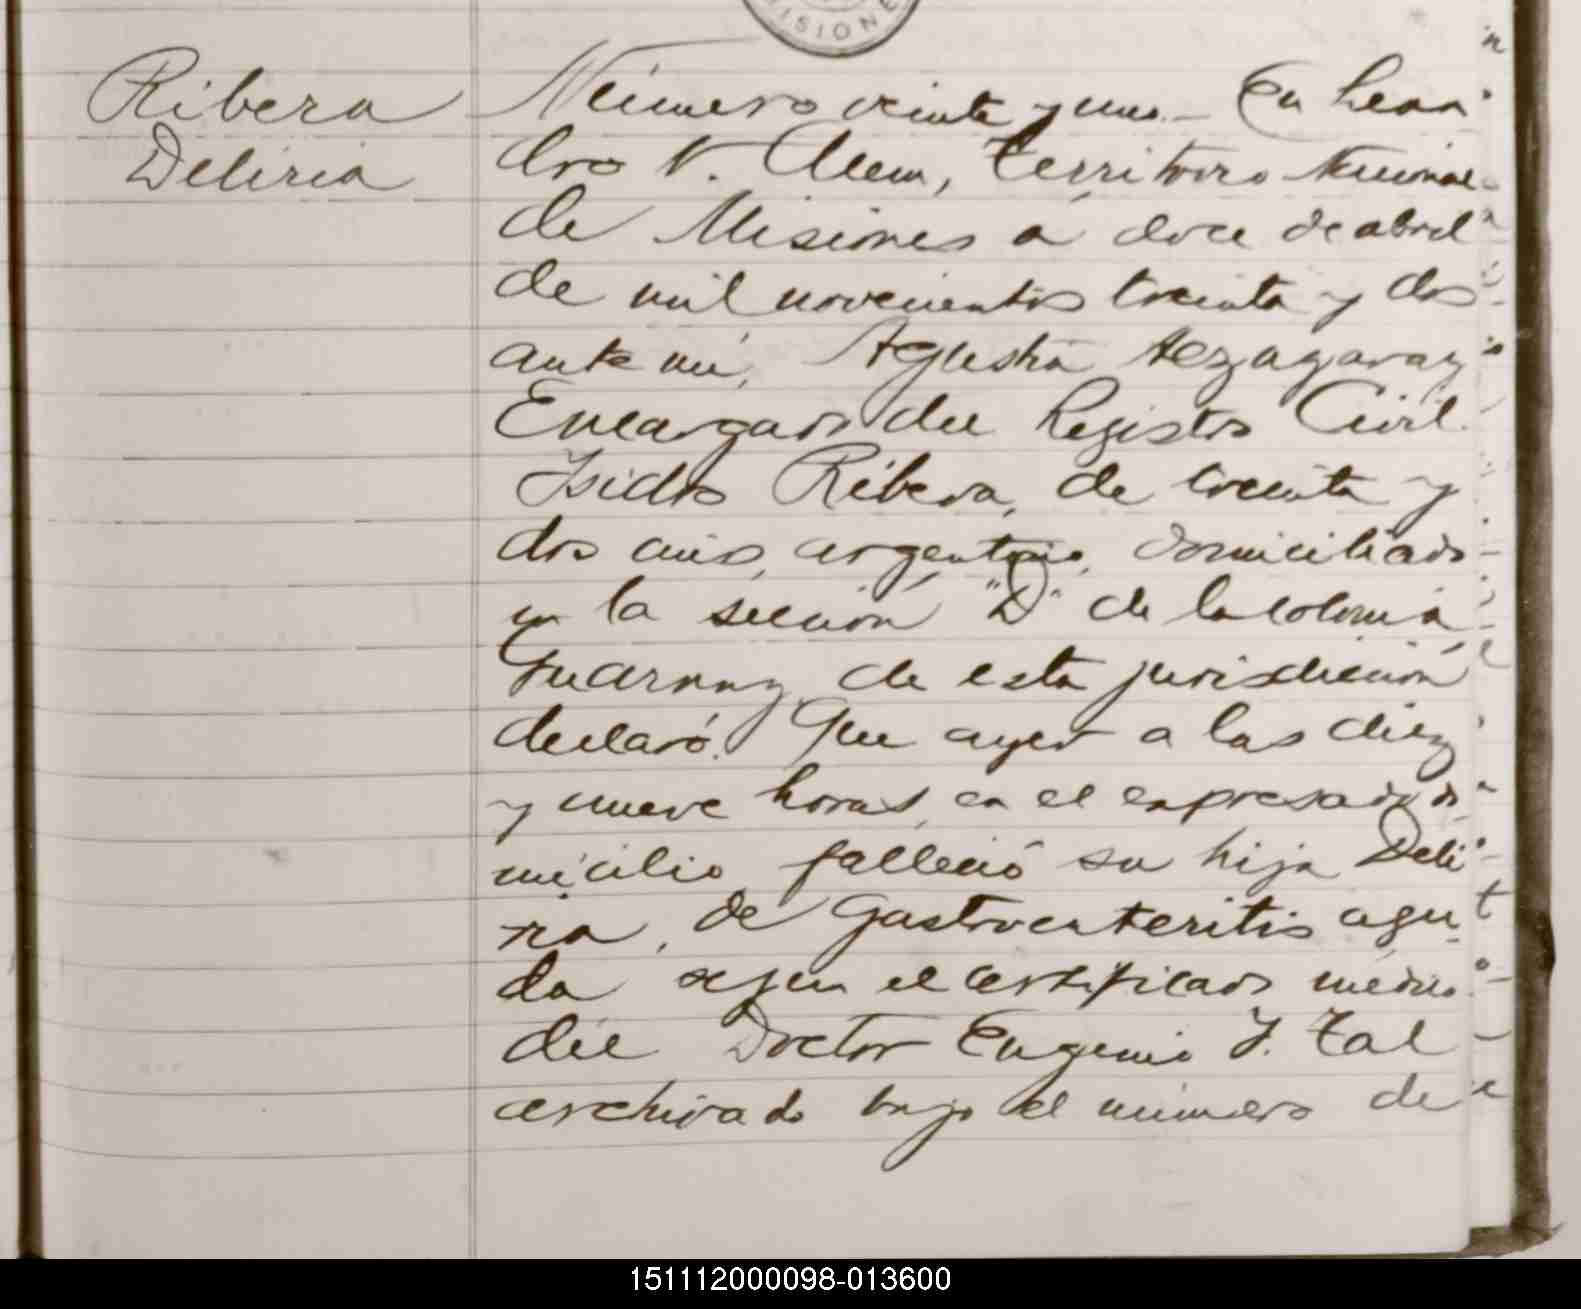 ISIONE
Ribera
Deliria
Número veinte y uno.- En Lean
dro N. Alem, Territorio Nacional
de Misiones a doce de abril
de mil novecientos treinta y dos
ante mi, Agustin
Encargado del Registro Civil
Isidro Ribera, de treinta y
dos años, argentino, domiciliado
en la sección "D" de la colonia
Guarany de esta jurisdicción
declaró: Que ayer a las diez
y nueve horas, en el expresado do
micilio falleció su hija Deli
ria, de Gastroenteritis agu
da segun el certificado médico
del Doctor Eugenio J. Tal
archivado bajo el número de
151112000098-013600